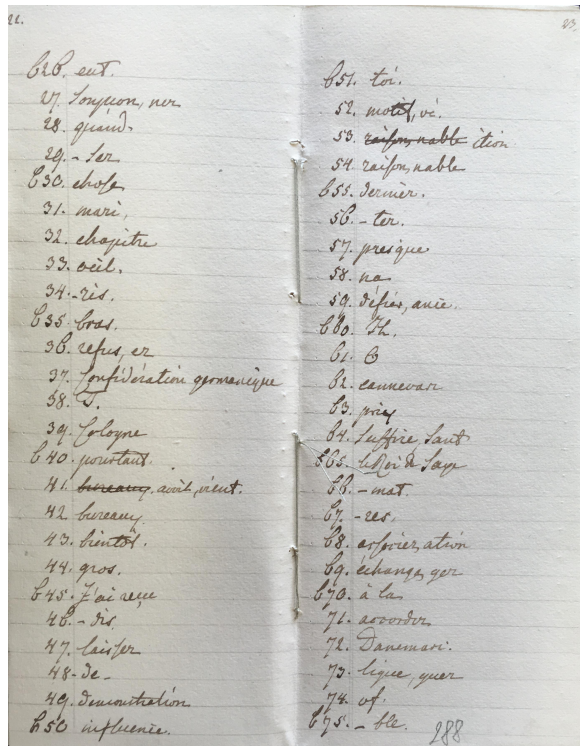 22.
626. eut.
27. soupçon, ner
28. quand.
29. - ser
630. chose
31. mari,
32. chapitre
33. œil.
34. - rès.
635 bras.
36. refus, er
37. Confédération germanique
38. T.
39. Cologne
640. pourtant.
41. bureaux, avoit, vient.
42 bureaux
43. bientôt.
44. gros.
645. J'ai reçu
46. - dis
47. laisser
48 - de -
49. demonstration
650 influence.
23.
651. toi.
52. motif, vi.
53. raisonnable ition
54. raisonnable
655. dernier.
56. - ter.
57. presque
58. na
59. défier, ance.
660. Th.
61. C
62.
63. prix
64. suffire sant
665. le Roi de Saxe
66. - mat.
67. - res.
68. associer, ation
69. échange, ger
670. à la
71. accorder
72. Danemarc.
73. ligue, guer
74. of.
675. - ble.
288